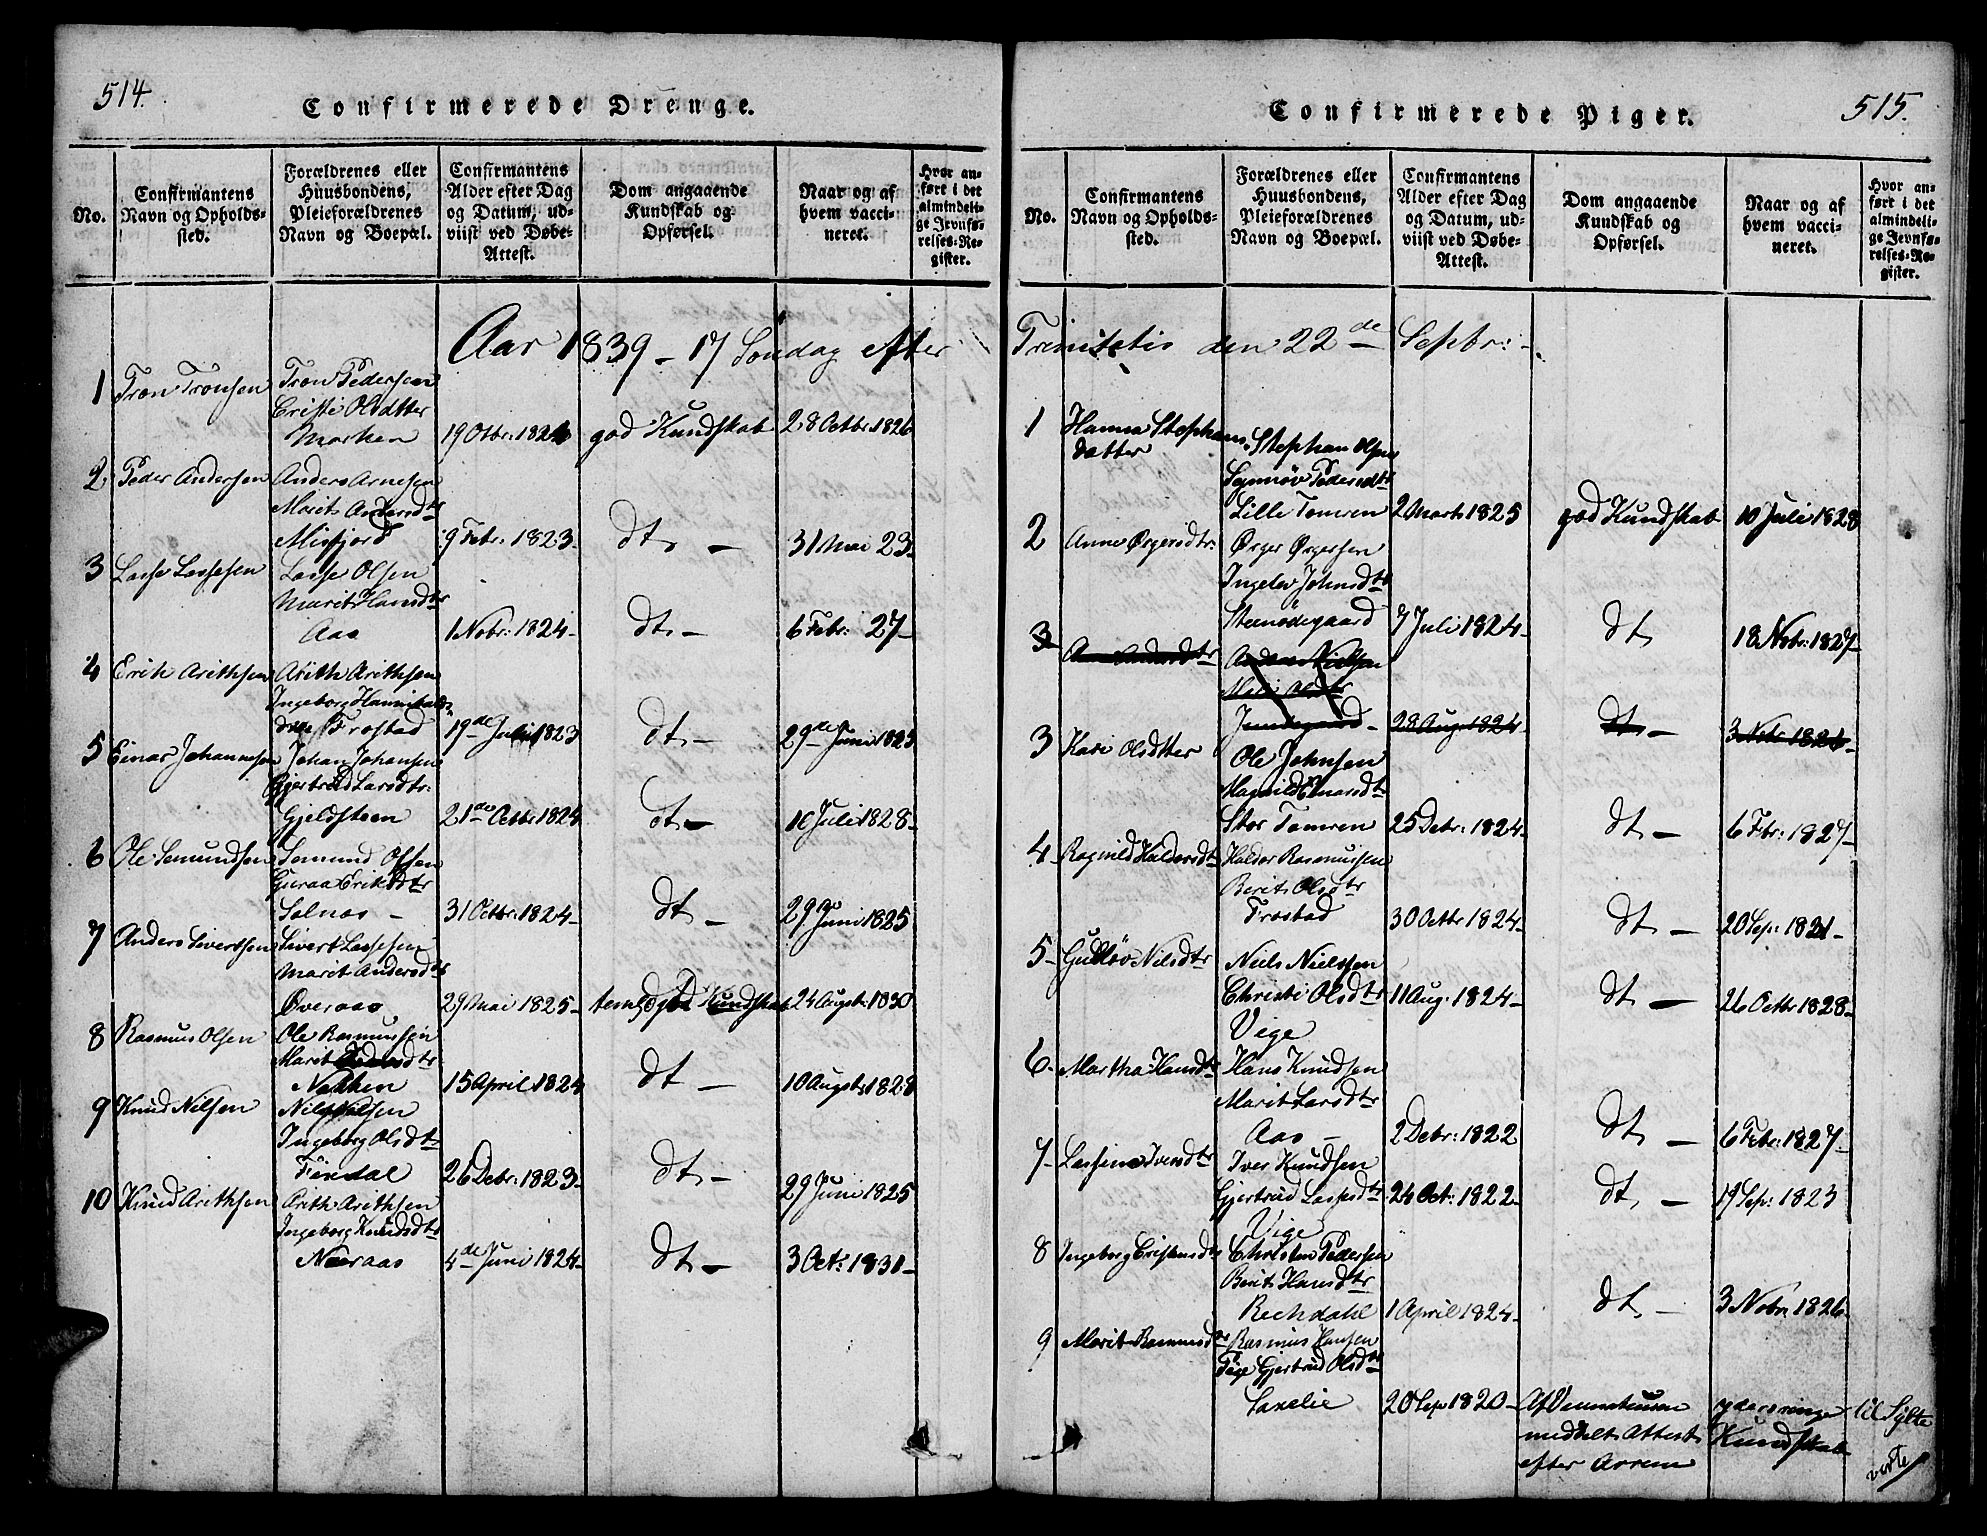 514.
Confirmerede Drenge.
No.
Confirmantens
Navn og Opholds-
sted.
Forældrenes eller
Huusbondens,
Pleieforældrenes
Navn og Boepæl.
Confirmantens
Alder efter Dag
og Datum, ud-
viist ved Døbe-
Attest.
Dom angaaende
Kundskab og
Opførsel.
Naar og af
hvem vacci-
neret.
Hvor an-
ført i det
almindeli-
ge Jevnfø-
relses-Re-
gister.
Aar 1839 - 17 Søndag efter
1 Tron Tronsen Tron Pedersen
Cristi Olsdtter
19 Otbr: 1824 god Kundskab 28 Octbr: 1826
2 Peder Andersen Anders Arnesen
Marit Andersdtr
Misfjord 9 Febr: 1823- dt - 31 Mai 23-
3 Lasse Lassesen Lasse Olsen
Marit Hansdtr
Aas 1 Nobr: 1824- dt - 6 Febr: 27-
4 Erik Arithsen Arith Arithsen
Ingeborg
Frostad 19de Juli 1823 dt - 29de Juni 1825
5 Einar Johannsen Johan Johansen
Gjertrud Larsdtr:
Gjeldsteen 21de Octbr 1824 dt - 10 Juli 1828-
6 Ole Semundsen Semund Olsen
Guraa Eriksdtr
Solnas - 31 Octbr: 1824- dt - 29 Juni 1825
7 Anders Sivertsen Sivert Lassesen
Marit Andersdtr
Øveraas 29 Mai 1825- Kundskab 24 Augst: 1830
8 Rasmus Olsen Ole Rasmussen
Marit
Nakken 15 April 1824 dt - 10 Augst: 1828
9 Knud Nilsen Nils
Ingeborg Olsdtr
26 Debr: 1823- dt - 29 Juni 1825
10 Knud Arithsen Arith Arithsen
Ingeborg Knudsdtr
Næraas 4de Juni 1824- dt - 3 Oct: 1831-
515.
Confirmerede Piger.
No.
Confirmantens
Navn og Opholds-
sted.
Forældrenes eller
Huusbondens,
Pleieforældrenes
Navn og Boepæl.
Confirmantens
Alder efter Dag
og Datum, ud-
viist ved Døbe-
Attest.
Dom angaaende
Kundskab og
Opførsel.
Naar og af
hvem vacci-
neret.
Hvor an-
ført i det
almindeli-
ge Jevnfø-
relses-Re-
gister.
Trinitatis den 22de Septbr:
1 Hanna Stephans
datter Stephan Olsen
Synnøv Pedersdtr
Lille Tomren 2 Marts 1825 god Kundskab 10 Juli 1828
2 Anne Ørgersdtr: Ørger Ørgersen
Ingelev Johnsdtr
Steenødegaard 7 Juli 1824- dt 18 Nobr: 1827-
3 Andersdtr Anders Nielsen
28 Aug: 1824 dt - 3 Nobr 1826-
3 Kari Olsdtter Ole Johnsen
Magnild Einarsdtr
Stor Tomren 25 Debr: 1824- dt - 6 Febr: 1827-
4 Ragnild Haldorsdtr Haldor Rasmussen
Berit Olsdtr
Frostad 30 Octbr 1824- dt - 20 Sep: 1821-
5- Gunløv Nilsdtr Niels Nielsen
Christi Olsdtr 11 Aug: 1824- dt - 26 Octbr 1828-
Vige
6- Martha Hansdtr Hans Knudsen
Marit Larsdtr
Aas - 2 Debr: 1822 dt - 6 Febr: 1827-
7- Lassine Iversdtr Iver Knudsen
Gjertrud Lassesdtr 24 Oct: 1822- dt - 19 Sep: 1823
Vige
8 Ingeborg Cristensdtr Christen Pedersen
Berit Hansdtr
Rechdahl 1 April 1824- dt - 3 Nobr: 1826-
9 Marit Rasmusdtr Rasmus Hansen
Gjertrud Olsdtr
20 Sep 1820- Af ydersringe til Sylte
meddelt Attest Kundskab
efter